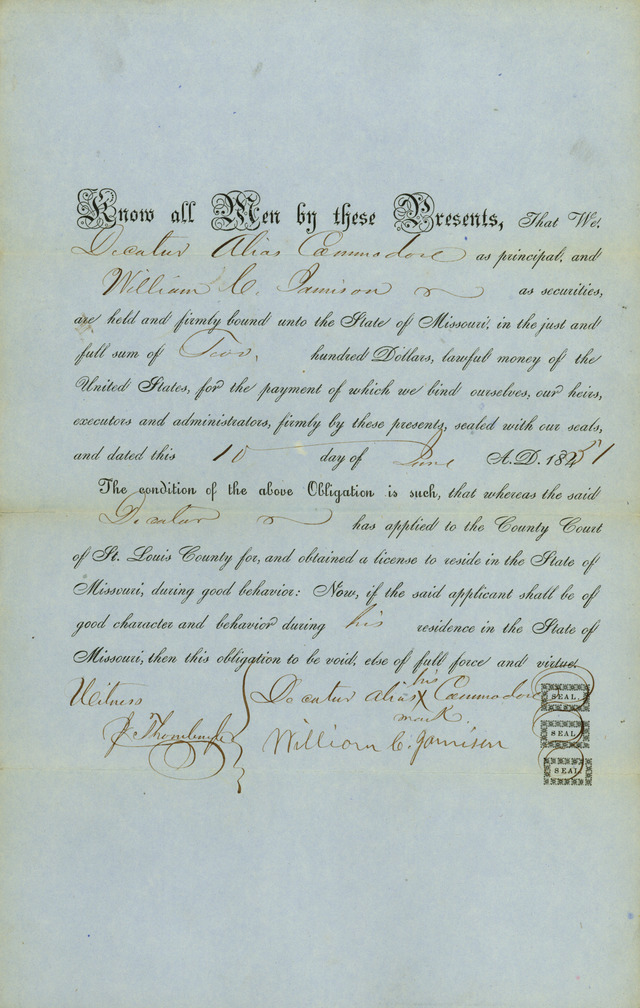 Know all Men by these Presents, That We,
Decatur Alias Commodore as principal, and
William C. Jamison as securities,
are held and firmly bound unto the State of Missouri, in the just and
full sum of Two, hundred Dollars, lawful money of the
United States, for the payment of which we bind ourselves, our heirs,
executors and administrators, firmly by these presents, sealed with our seals,
and dated this 10 day of June A.D. 1851
The condition of the above Obligation is such, that whereas the said
Decatur has applied to the County Court
of St. Louis County for, and obtained a license to reside in the State of
Missouri, during good behavior: Now, if the said applicant shall be of
good character and behavior during his residence in the State of
Missouri, then this obligation to be void, else of full force and virtue.
his
Witness Decatur alias X Commodore SEAL.
mark
William C. Jamison SEAL.
SEAL